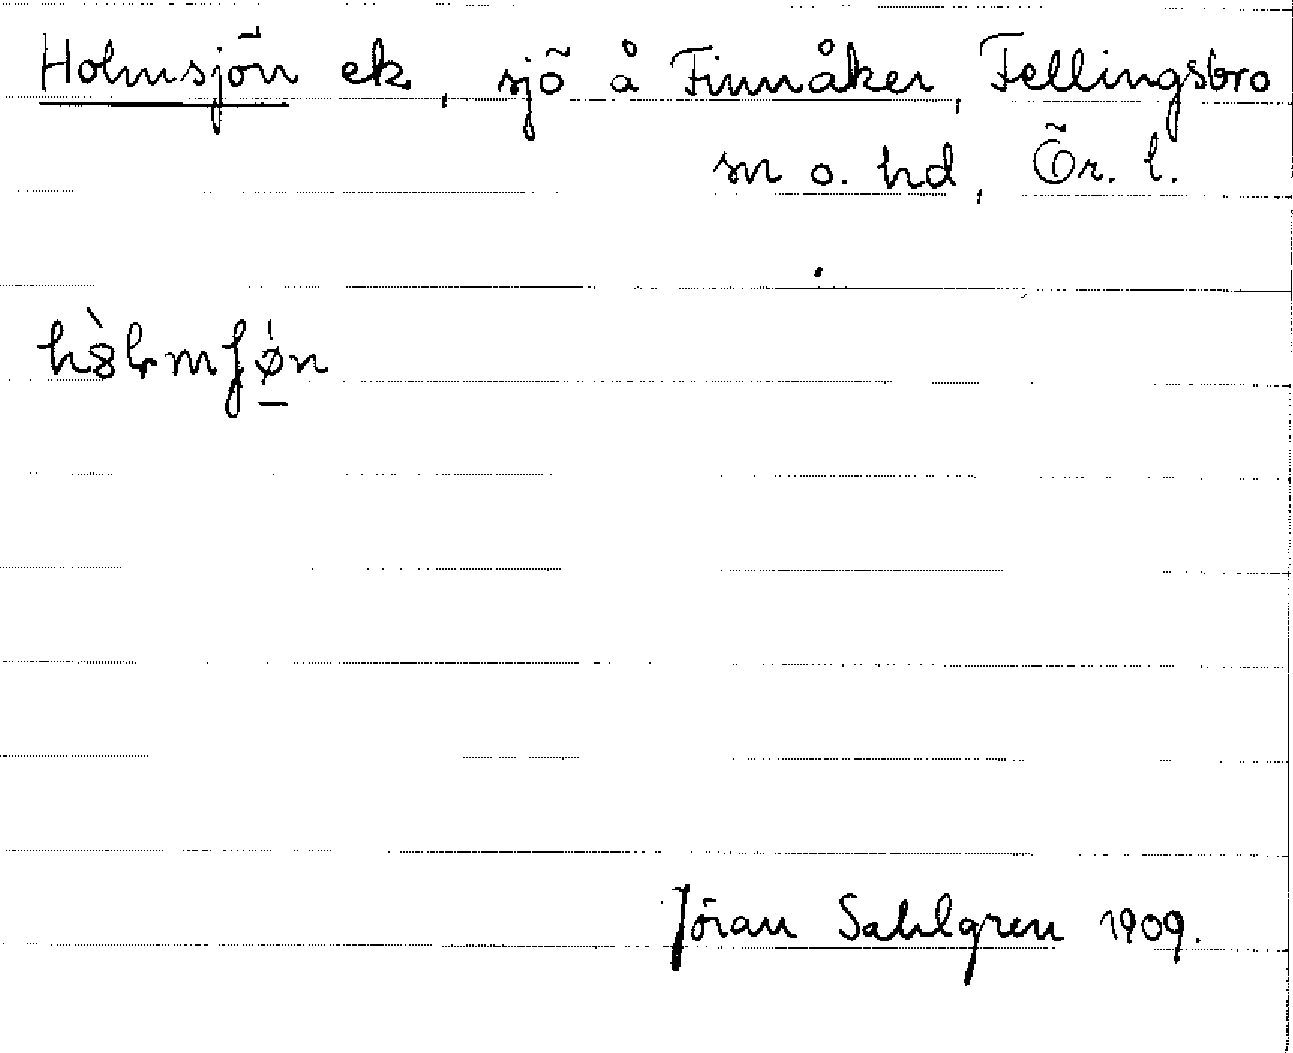 Holmsjön ek, sjö å Finnåker, Fellingsbro
sn o. hd, Ör. l.
Jöran Sahlgren 1909.